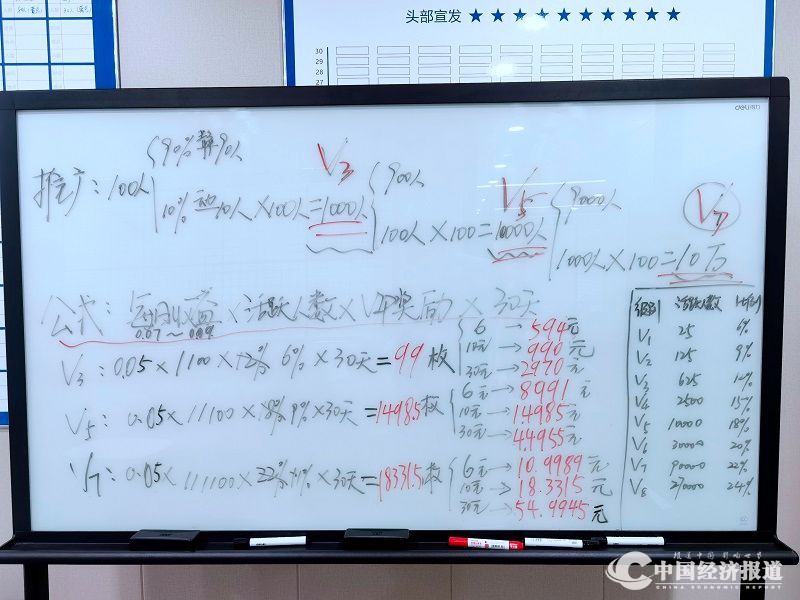 头部宣发 ★★★★★★★★★★
30
29
28
deli得力
90% 静90人
推广：100人
10% 动10人×100人=1000人
V3
900人
100人×100=10000人
V5
9000人
1000人×100=10万
V7
公式：每日收益×活跃人数×V平奖励×30天
0.07~
V3：0.05×1100×12% 6%×30天=99枚
6→594元
10元→990元
30元→2970元
V5：0.05×11100×18% 9%×30天=1498.5枚
6元→8991元
10元→14985元
30元→44955元
V7：0.05×111100×22% 11%×30天=18331.5枚
6元→10.9989元
10元→18.3315元
30元→54.9945元
级别 活跃人数 比例
V1 25 6%
V2 125 9%
V3 625 12%
V4 2500 15%
V5 10000 18%
V6 30000 20%
V7 90000 22%
V8 270000 24%
报道中国 影响世界
中国经济报道
CHINA ECONOMIC REPORT